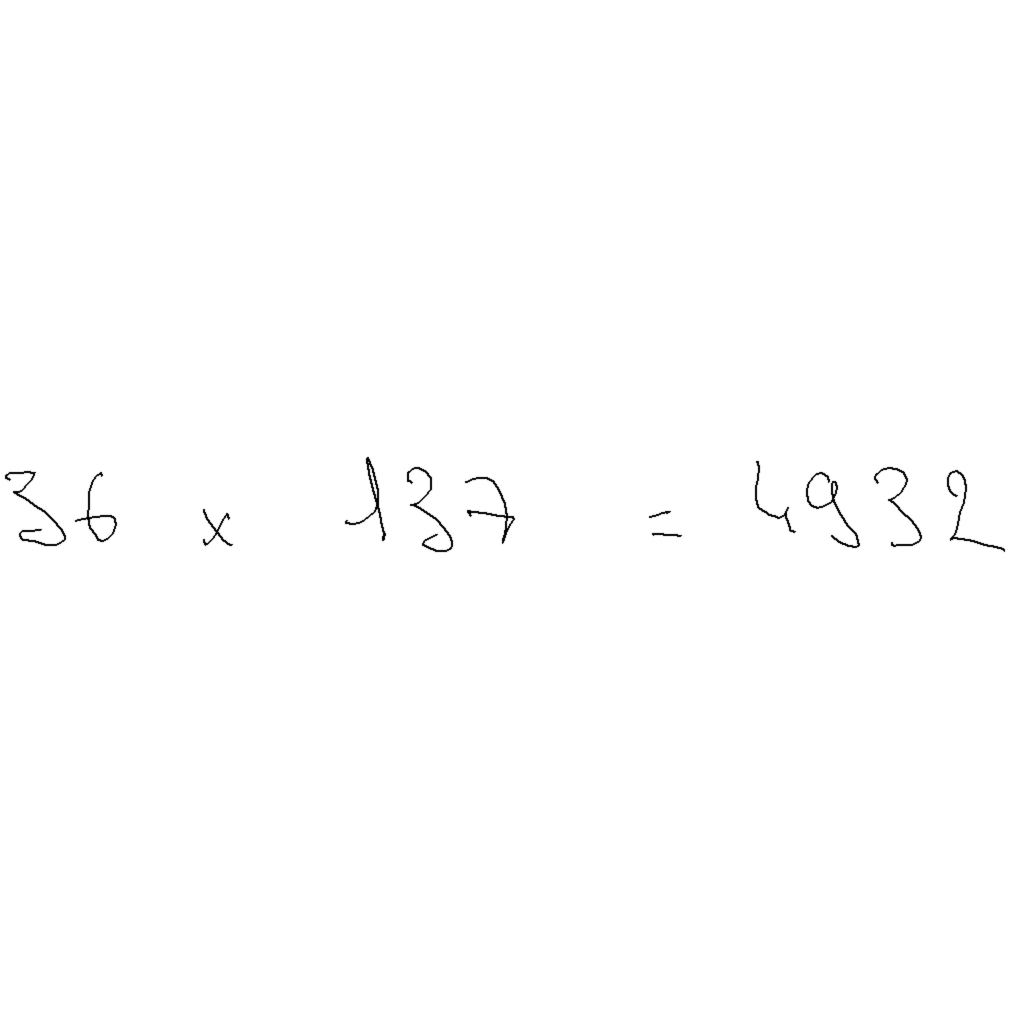 36 x 137 = 4932